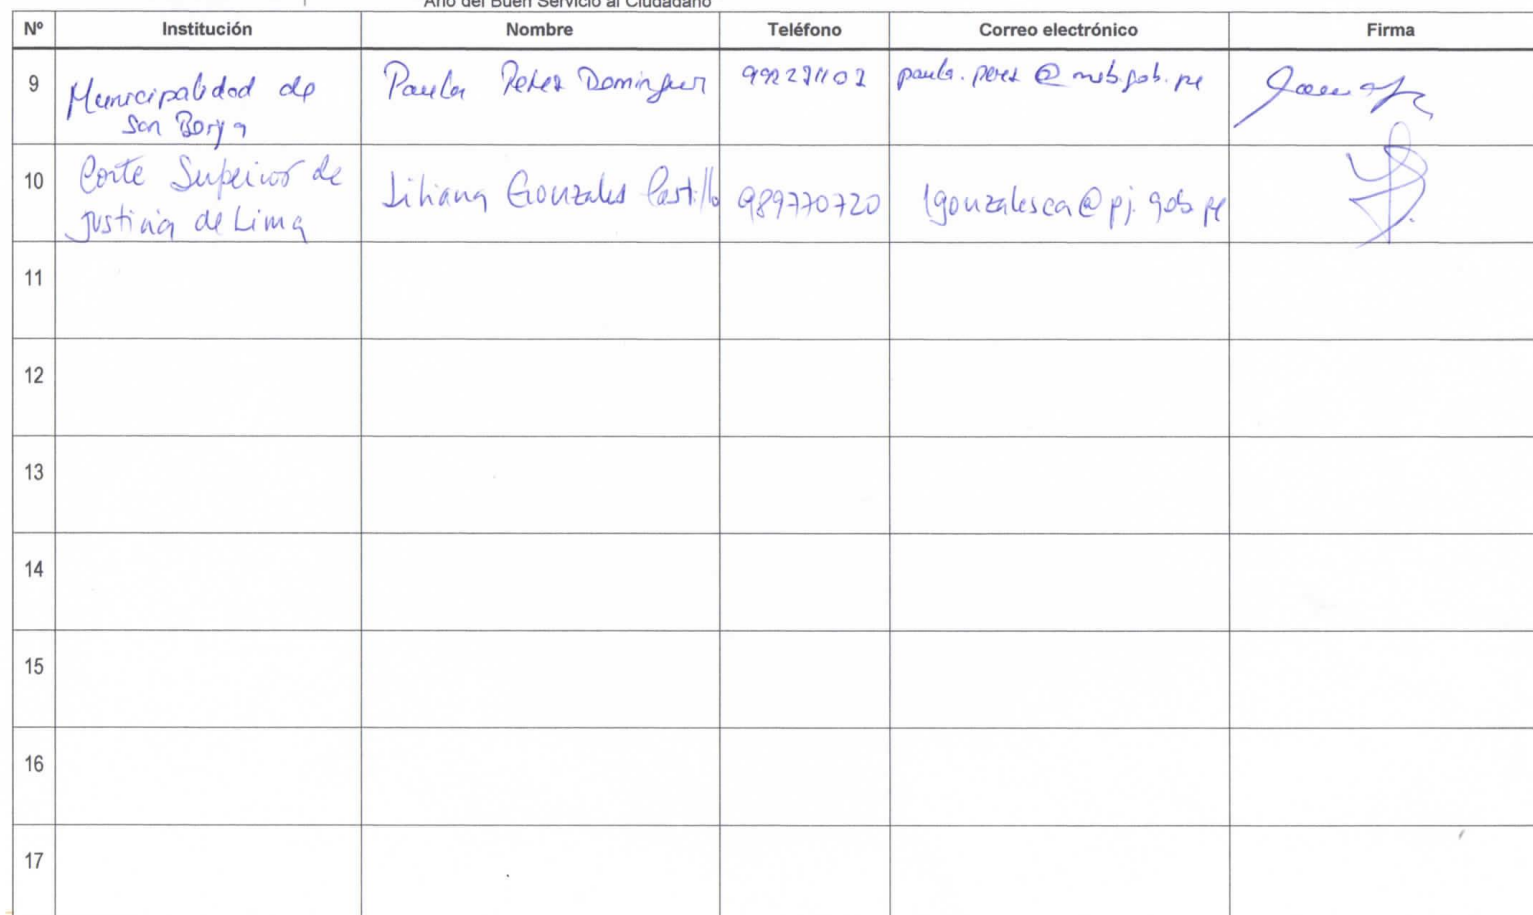 Año del Buen Servicio al Ciudadano
Nº Institución Nombre Teléfono Correo electrónico Firma
9 Municipalidad de San Borja Paula Perez Dominguez paula.perez@msb.gob.pe
10 Corte Superior de Justicia de Lima Liliana Gonzales Castillo 989770720 lgonzalesca@pj.gob.pe
11
12
13
14
15
16
17